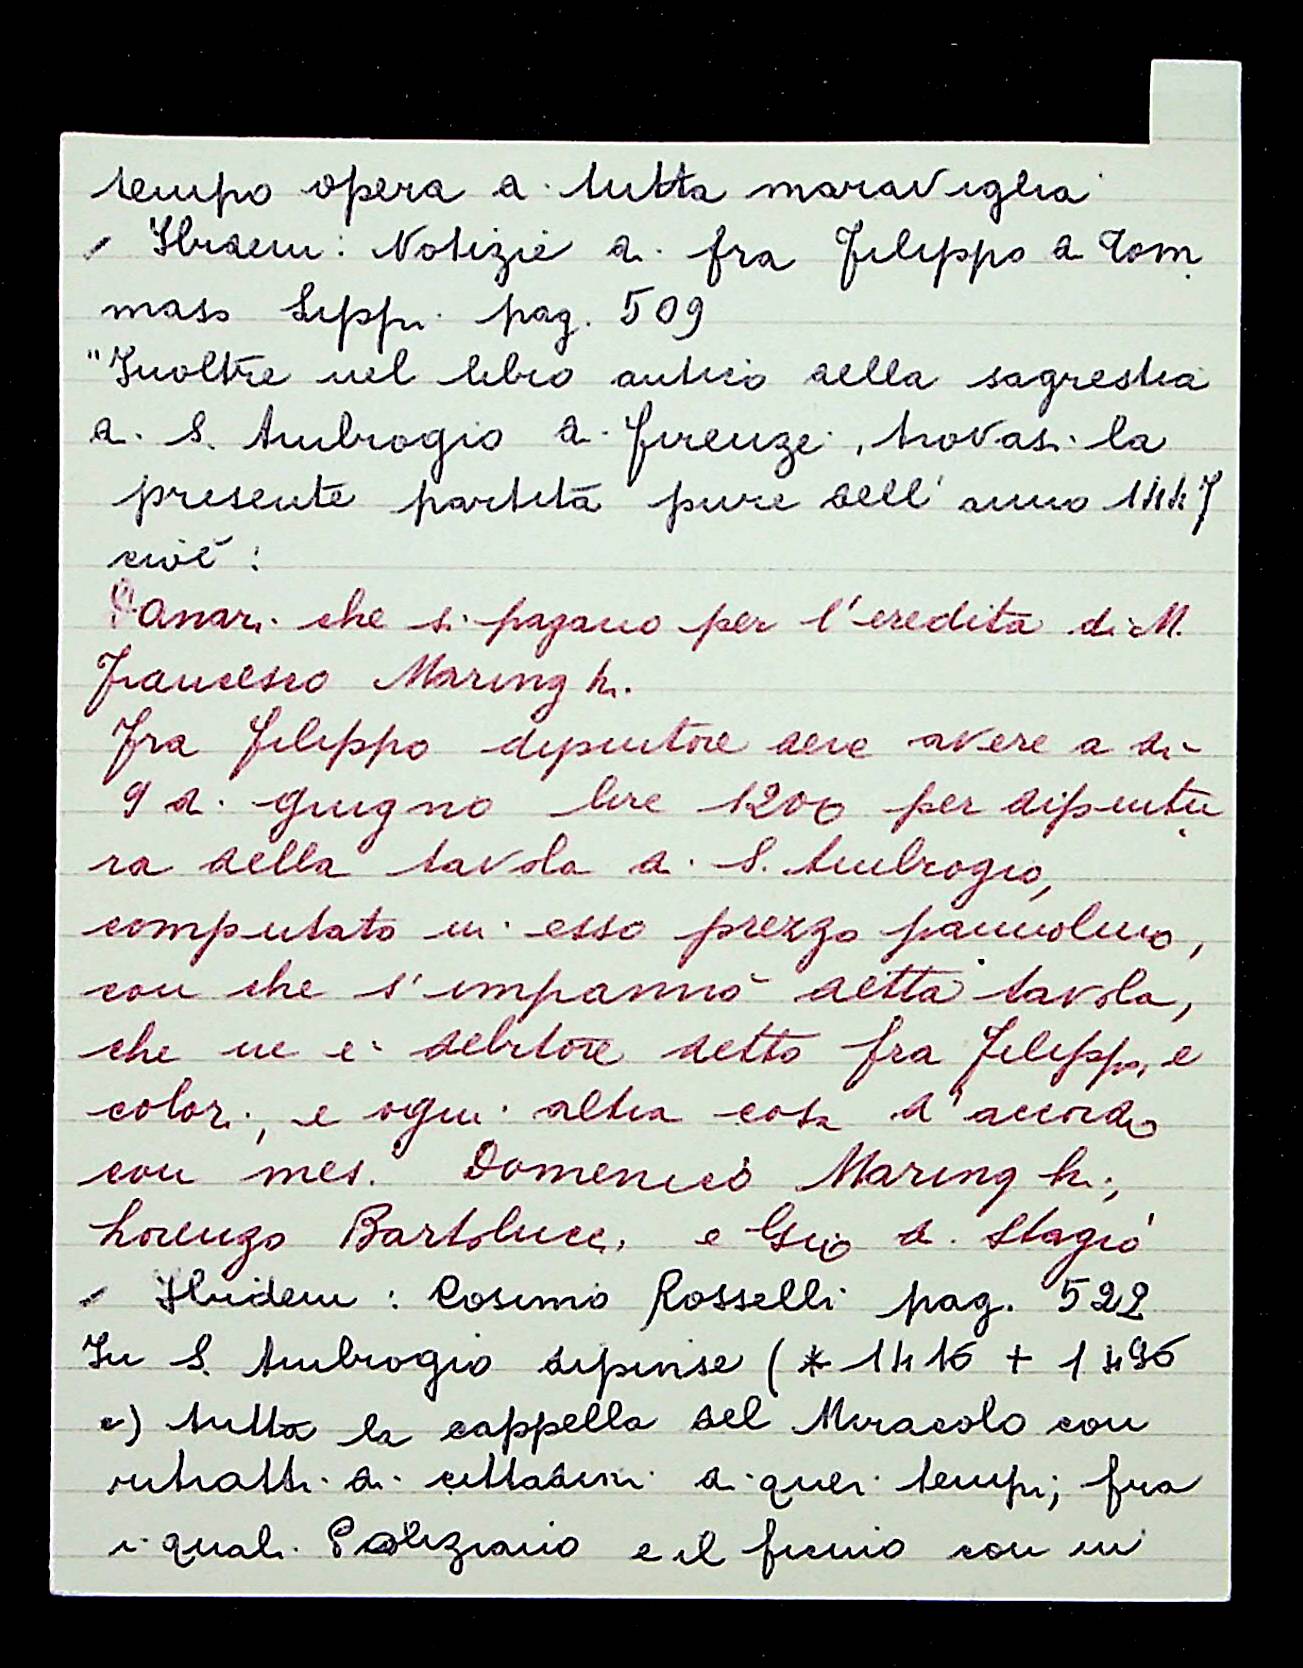 tempo opera di tutta maraviglia
- Ibidem: Notizie di fra Filippo di Tom
maso Lippi pag. 509
"Inoltre nel libro antico della sagrestia
di S. Ambrogio di Firenze, trovasi la
presente partita pure dell'anno 1447
cioè:
Danari che si pagano per l'eredità di M.
Francesco Maringhi.
Fra Filippo dipintore deve avere a dì
9 di giugno lire 1200 per dipintu
ra della tavola di S. Ambrogio,
computato in esso prezzo pannolino,
con che s'impannò detta tavola,
che ne è debitore detto fra Filippo, e
colori, e ogni altra cosa d'accordo
con mes. Domenico Maringhi,
Lorenzo Bartolucci, e Gio di Stagio
- Ibidem: Cosimo Rosselli pag. 522
In S. Ambrogio dipinse (* 1416 + 1496
c) tutta la cappella del Miracolo con
ritratti di cittadini di quei tempi; fra
i quali Poliziano e il ficino con in